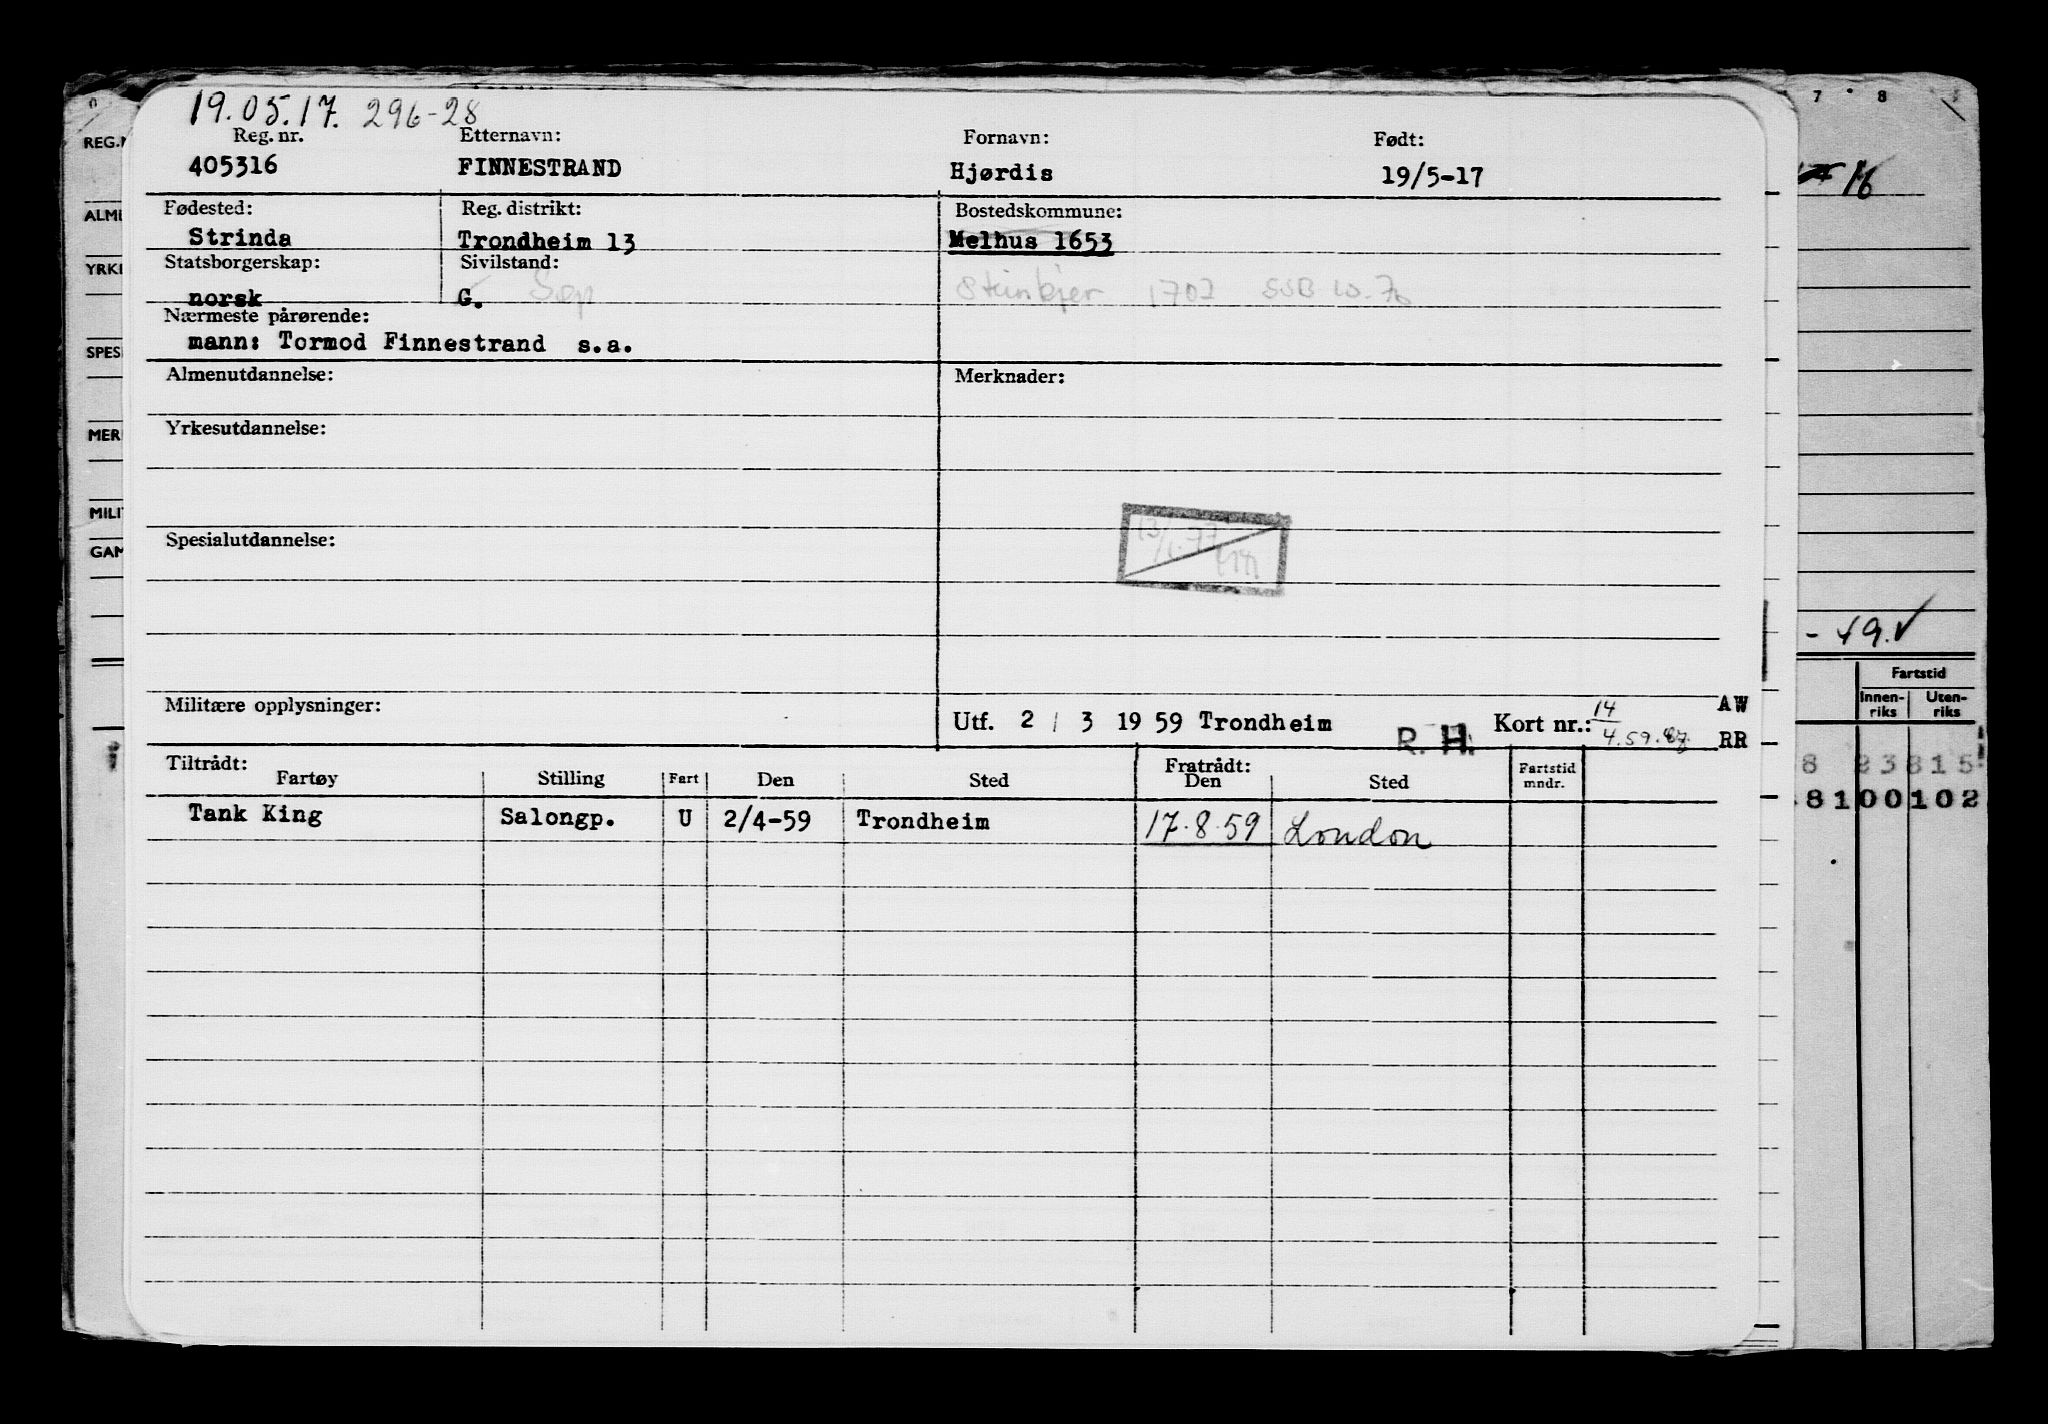 19.05.17. 296-28
Reg. nr. Etternavn: Fornavn: Født:
405316 FINNESTRAND Hjørdis 19/5-17
Fødested: Reg. distrikt: Bostedskommune:
Strinda Trondheim 13 Melhus 1653
Statsborgerskap: Sivilstand:
norsk G. Sep Steinkjer 1702 SSB 10.70
Nærmeste pårørende:
mann: Tormod Finnestrand s.a.
Almenutdannelse: Merknader:
Yrkesutdannelse:
Spesialutdannelse:
Militære opplysninger:
Utf. 2 / 3 19 59 Trondheim R. H. Kort nr.: 14 AW
4.59. RR
Tiltrådt: Fratrådt:
Fartøy Stilling Fart Den Sted Den Sted Fartstid mndr.
Tank King Salongp. U 2/4-59 Trondheim 17.8.59 London
REG.N
ALME
YRKE
SPESI
MER
MILIT
GAM
7 8
16
- 49.✓
Fartstid
Innen-riks Uten-riks
8 23815
8100102